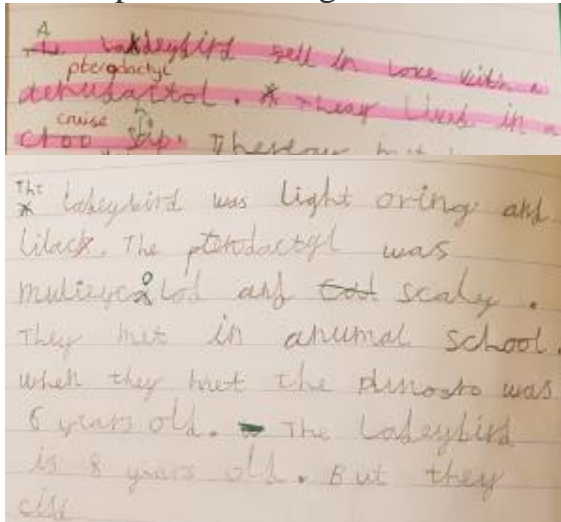 A
ladeybird fell in love with a
pterodactyl
denudactol. * They Lived in a
cruise
croo ship. met
The
* ladeybird was light oring and
lilack. The pterodactyl was
muliey and scaley.
They met in anumal school.
when they met the was
6 years old. The Ladeybird
is 8 years old. But they